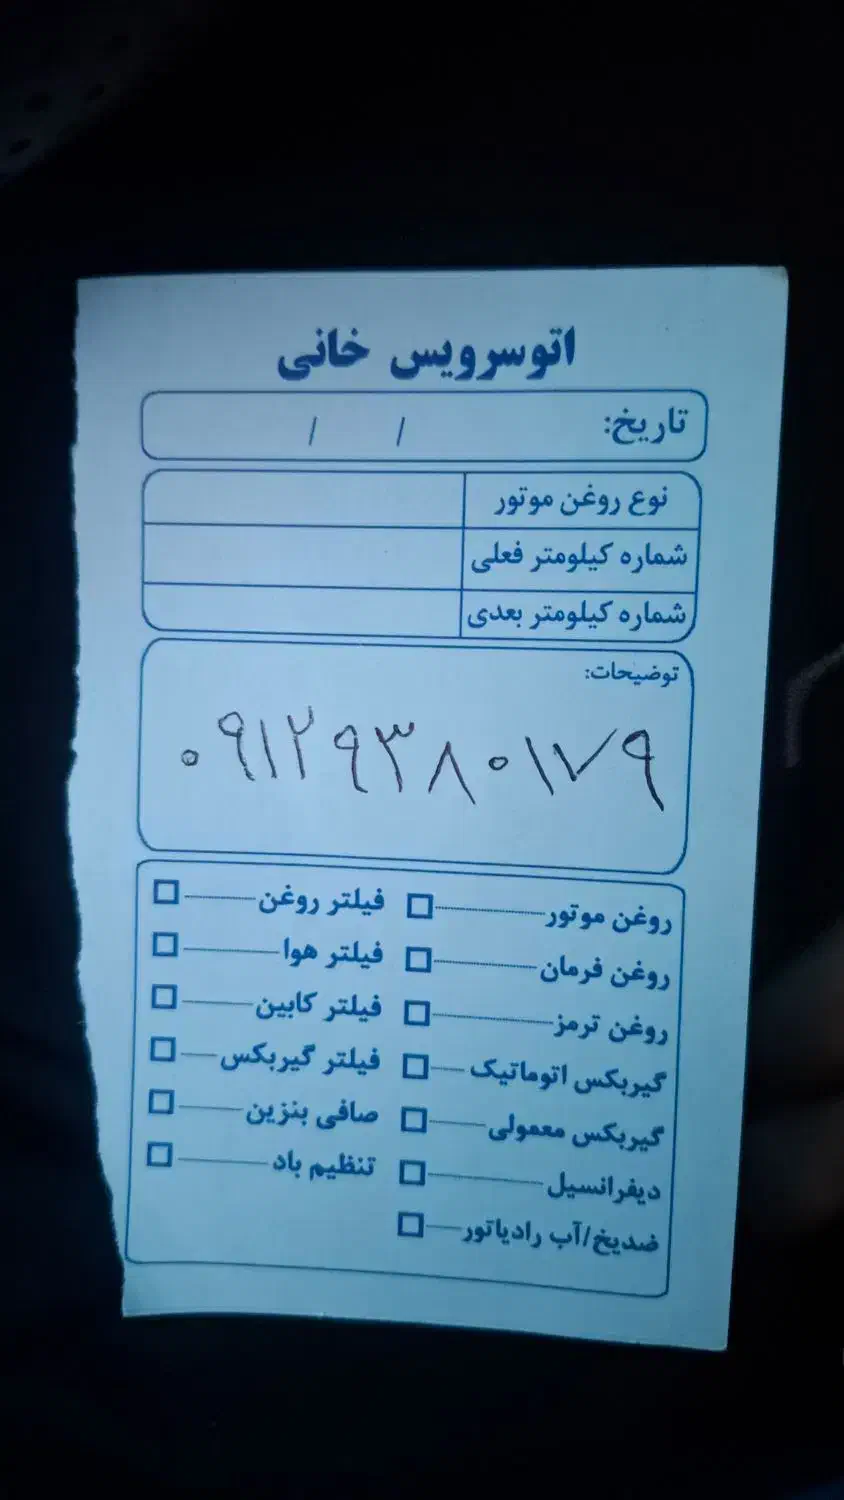 اتوسرویس خانی
تاریخ: / /
نوع روغن موتور
شماره کیلومتر فعلی
شماره کیلومتر بعدی
توضیحات:
۰۹۱۲۹۳۸۰۱۷۹
روغن موتور فیلتر روغن
روغن فرمان فیلتر هوا
روغن ترمز فیلتر کابین
گیربکس اتوماتیک فیلتر گیربکس
گیربکس معمولی صافی بنزین
دیفرانسیل تنظیم باد
ضدیخ/آب رادیاتور